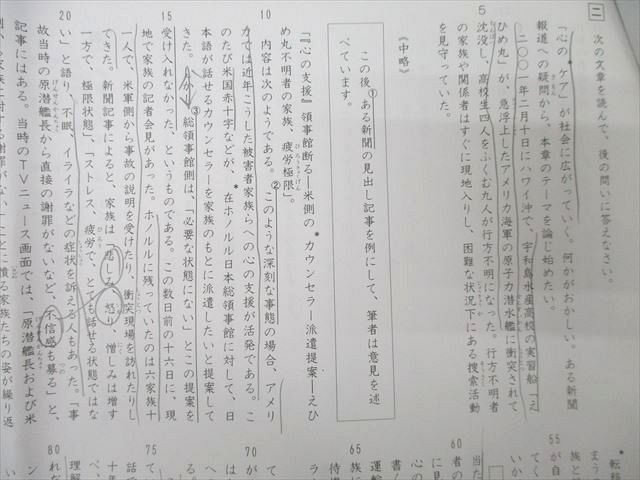 二 次の文章を読んで、後の問いに答えなさい。
「心の*ケア」が社会に広がっていく。何かがおかしい。ある新聞
報道への疑問から、本章のテーマを論じ始めたい。
二〇〇一年二月十日にハワイ沖で、宇和島水産高校の実習船「え
ひめ丸」が、急浮上したアメリカ海軍の原子力潜水艦に衝突されて
5
沈没し、高校生四人をふくむ九人が行方不明になった。行方不明者
の家族や関係者はすぐに現地入りし、困難な状況下にある捜索活動
を見守っていた。
《中略》
この後①ある新聞の見出し記事を例にして、筆者は意見を述
べています。
「『心の支援』領事館断る—米側の*カウンセラー派遣提案—えひ
め丸不明者の家族、疲労極限」。
10
内容は次のようである。②このような深刻な事態の場合、アメリ
カでは近年こうした被害者家族らへの心の支援が活発である。こ
のたび米国赤十字などが、*在ホノルル日本総領事館に対して、日
本語が話せるカウンセラーを家族のもとに派遣したいと提案して
きた。しかし、③総領事館側は、「必要な状態にない」とこの提案を
15
受け入れなかった、というものである。この数日前の十六日に、現
地で家族の記者会見があった。ホノルルに残っていたのは六家族十
一人で、米軍側から事故の説明を受けたり、衝突現場を訪れたりし
てきた。新聞記事によると、家族は「悲しみ、怒り、憎しみは増す
一方で、極限状態」、「ストレス、疲労で、とても話せる状態ではな
20
い」と語り、不眠、イライラなどの症状を訴える人もあった。「事
故当時の原潜艦長から直接の謝罪がないなど、不信感も募る」と、
記事にはある。当時のTVニュース画面では、「原潜艦長および米
55
60
65
70
75
80